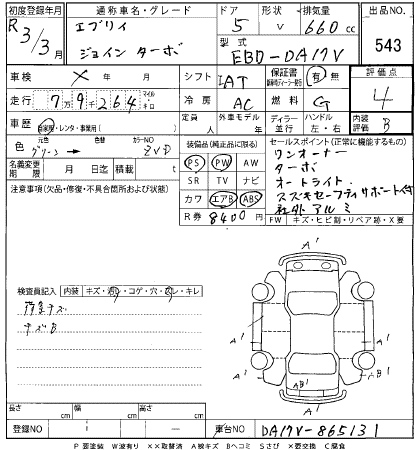 初度登録年月 通称車名・グレード ドア 形状 排気量 出品NO.
R3/3月 エブリィ ジョイン ターボ 5 V 660cc 543
型式 EBD-DA17V
車検 × 年 月 シフト IAT 保証書 有 無 評価点 4
走行 7万9千264 マイル キロ 冷房 AC 燃料 G
車歴 自家用・レンタ・事業用( ) 定員 人 外車モデル 年 ディーラー 並行 ハンドル 左・右 内装評価 B
元色 グリーン 色替 カラーNO ZVD
名義変更期限 月 日迄 積載 kg
装備品(純正品に限る)
PS PW AW
SR TV ナビ
カワ エアB ABS
R券 8400 円
セールスポイント(正常に機能するもの)
ワンオーナー
ターボ
オートライト
スズキセーフティサポート付
社外アルミ
FW キズ・ヒビ割・リペア跡・X要
注意事項(欠品・修復・不具合箇所および状態)
検査員記入 内装 キズ・汚レ・コゲ・穴・スレ・キレ
荷室キズ
キズB
A1
A1
A1
A1
A1
A1
AB1
A1
長さ cm 幅 cm 高さ cm
登録NO 車台NO DA17V-865131
P 要塗装 W波有り ××取替済 A線キズ Bヘコミ Sさび ×要交換 C腐食